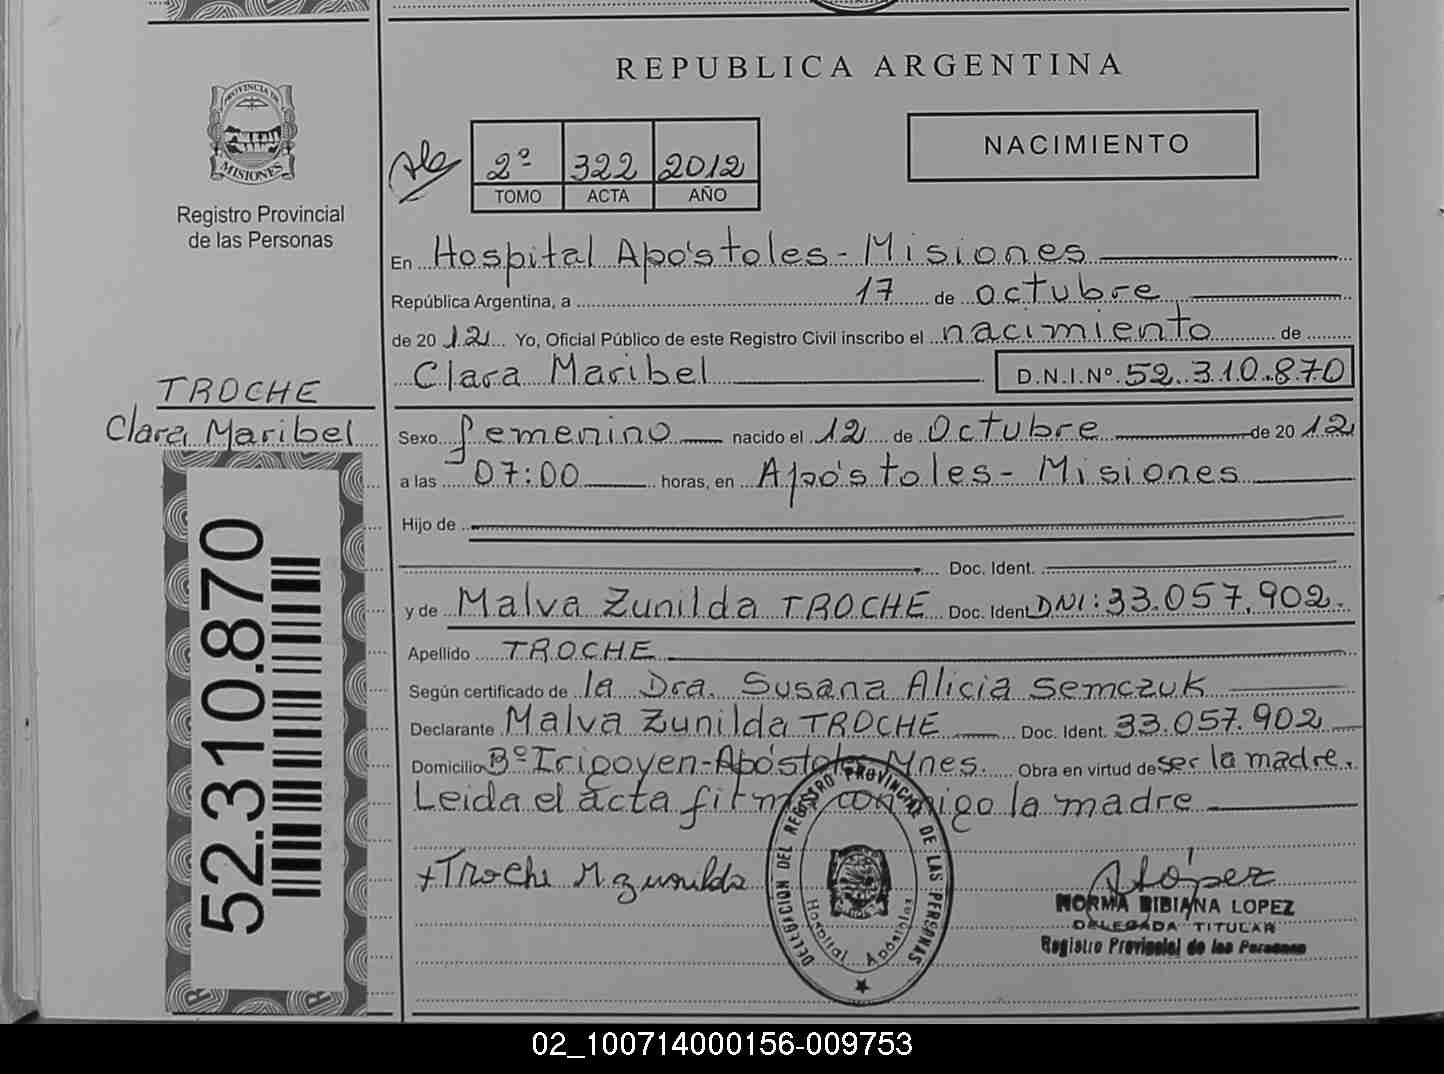 REPUBLICA ARGENTINA
PROVINCIA DE
MISIONES
Registro Provincial
de las Personas
2º 322 2012
TOMO ACTA AÑO
NACIMIENTO
En Hospital Apóstoles - Misiones
República Argentina, a 17 de octubre
de 2012 Yo, Oficial Público de este Registro Civil inscribo el nacimiento de
Clara Maribel D.N.I.Nº 52.310.870
TROCHE
Clara Maribel
Sexo femenino nacido el 12 de Octubre de 2012
a las 07:00 horas, en Apóstoles - Misiones
Hijo de
Doc. Ident.
y de Malva Zunilda TROCHE Doc. Ident DNI: 33.057.902.
Apellido TROCHE
Según certificado de la Dra. Susana Alicia Semczuk
Declarante Malva Zunilda TROCHE Doc. Ident. 33.057.902
Domicilio Bº Irigoyen - Apóstoles Mnes. Obra en virtud de ser la madre.
Leida el acta firma conmigo la madre
52.310.870
+Troche M Zunilda
DELEGACION DEL REGISTRO PROVINCIAL DE LAS PERSONAS
Hospital Apóstoles
López
NORMA BIBIANA LOPEZ
DELEGADA TITULAR
Registro Provincial de las Personas
02_100714000156-009753